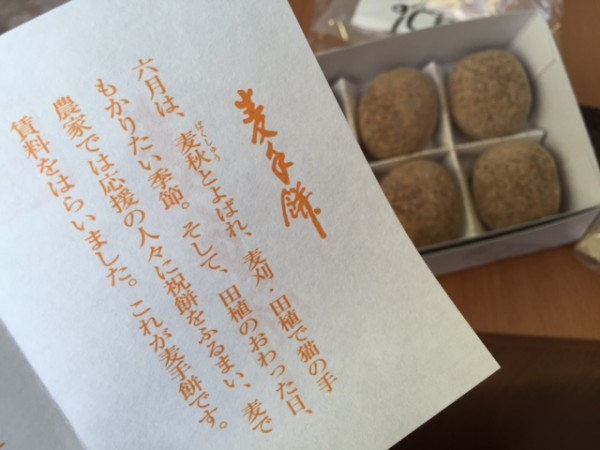 麦手餅
六月は、麦秋とよばれ、麦刈・田植で猫の手
ばくしゅう
もかりたい季節。そして、田植のおわった日、
農家では応援の人々に祝餅をふるまい、麦で
賃料をはらいました。これが麦手餅です。